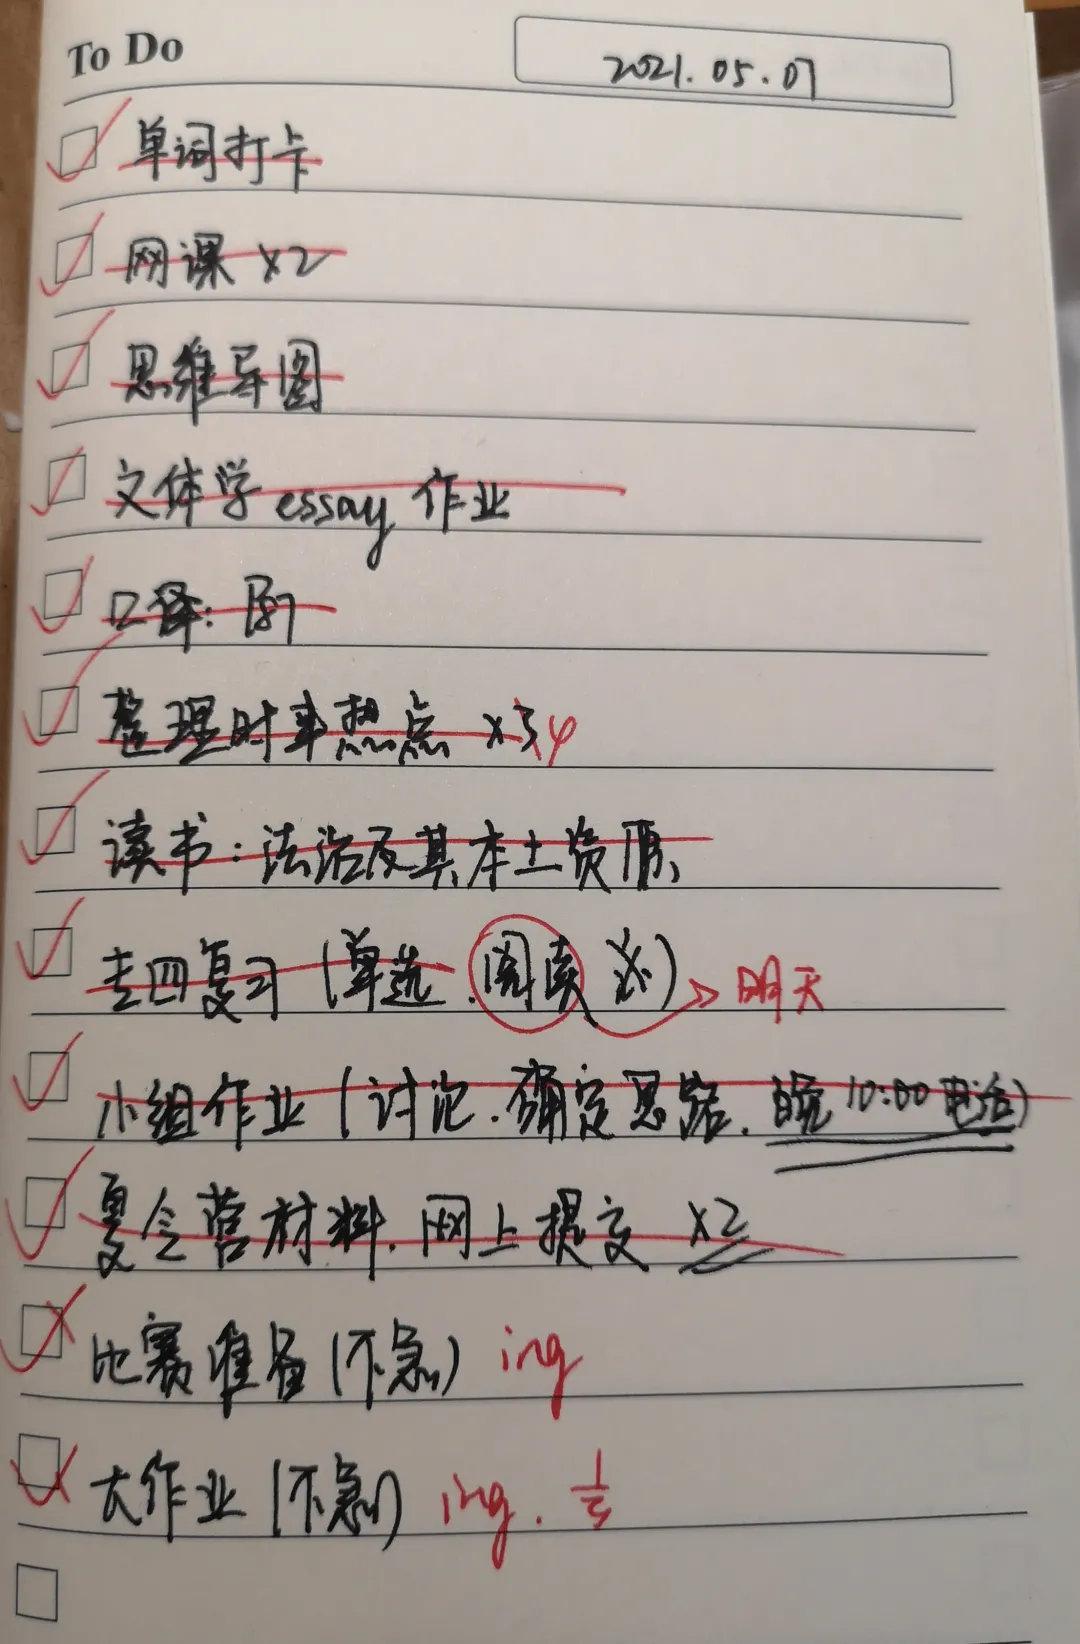 To Do
2021.05.07
单词打卡
网课 x2
思维导图
文体学 essay 作业
口译:
整理时事热点 x3 4
读书:法治及其本土资源
专四复习(单选.阅读)→明天
小组作业(讨论.确定思路.晚10:00电话)
夏令营材料.网上提交 x2
比赛准备(不急) ing
大作业(不急) ing. 1/3